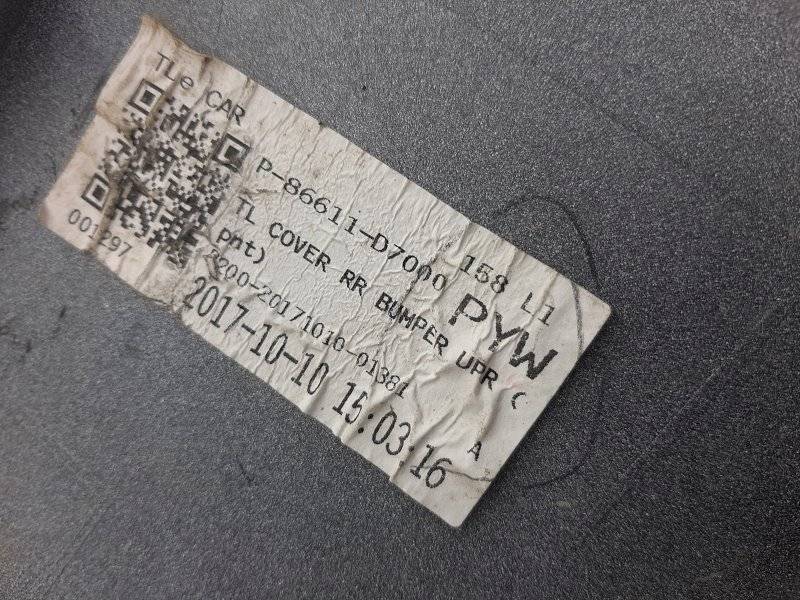 TLe CAR
158 L1
P-86611-D7000 PYW
TL COVER RR BUMPER UPR (
pnt)
200-20171010-01381 A
001297
2017-10-10 15:03:16